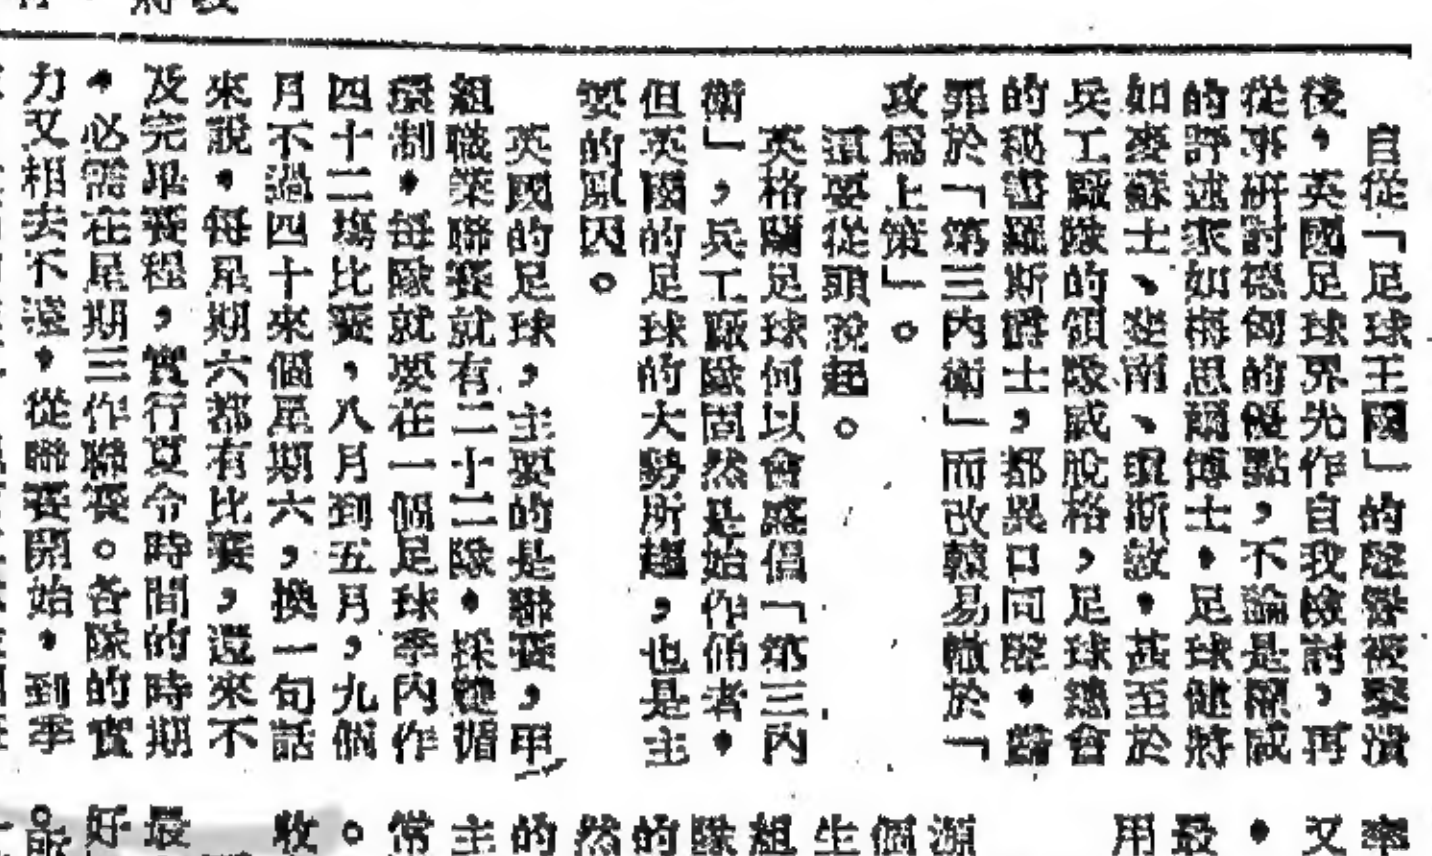 自從「足球王國」的聲譽被擊潰
後，英國足球界光作自我檢討，再
從事研討德匈的優點，不論是權威
的評述家如梅思爾博士，足球健將
如麥蘇士、堅南、瓊斯敦，甚至於
兵工廠隊的領隊威脫格，足球總會
的秘書羅斯爵士，都異口同聲，歸
罪於「第三內衛」而改轅易轍於「
攻爲上策」。
還要從頭說起。
英格蘭足球何以會盛倡「第三內
衛」，兵工廠隊固然是始作俑者，
但英國的足球的大勢所趨，也是主
要的風因。
英國的足球，主要的是聯賽，甲
組職業聯賽就有二十二隊，採雙循
環制，每隊就要在一個足球季內作
四十二塲比賽，八月到五月，九個
月不過四十來個星期六，換一句話
來說，每星期六都有比賽，還來不
及完畢賽程，實行夏令時間的時期
，必需在星期三作聯賽。各隊的實
力又相去不遠，從聯賽開始，到季
率
又
，
最
用
源
個
生
組
隊
的
然
的
主
常
。
收
最
好